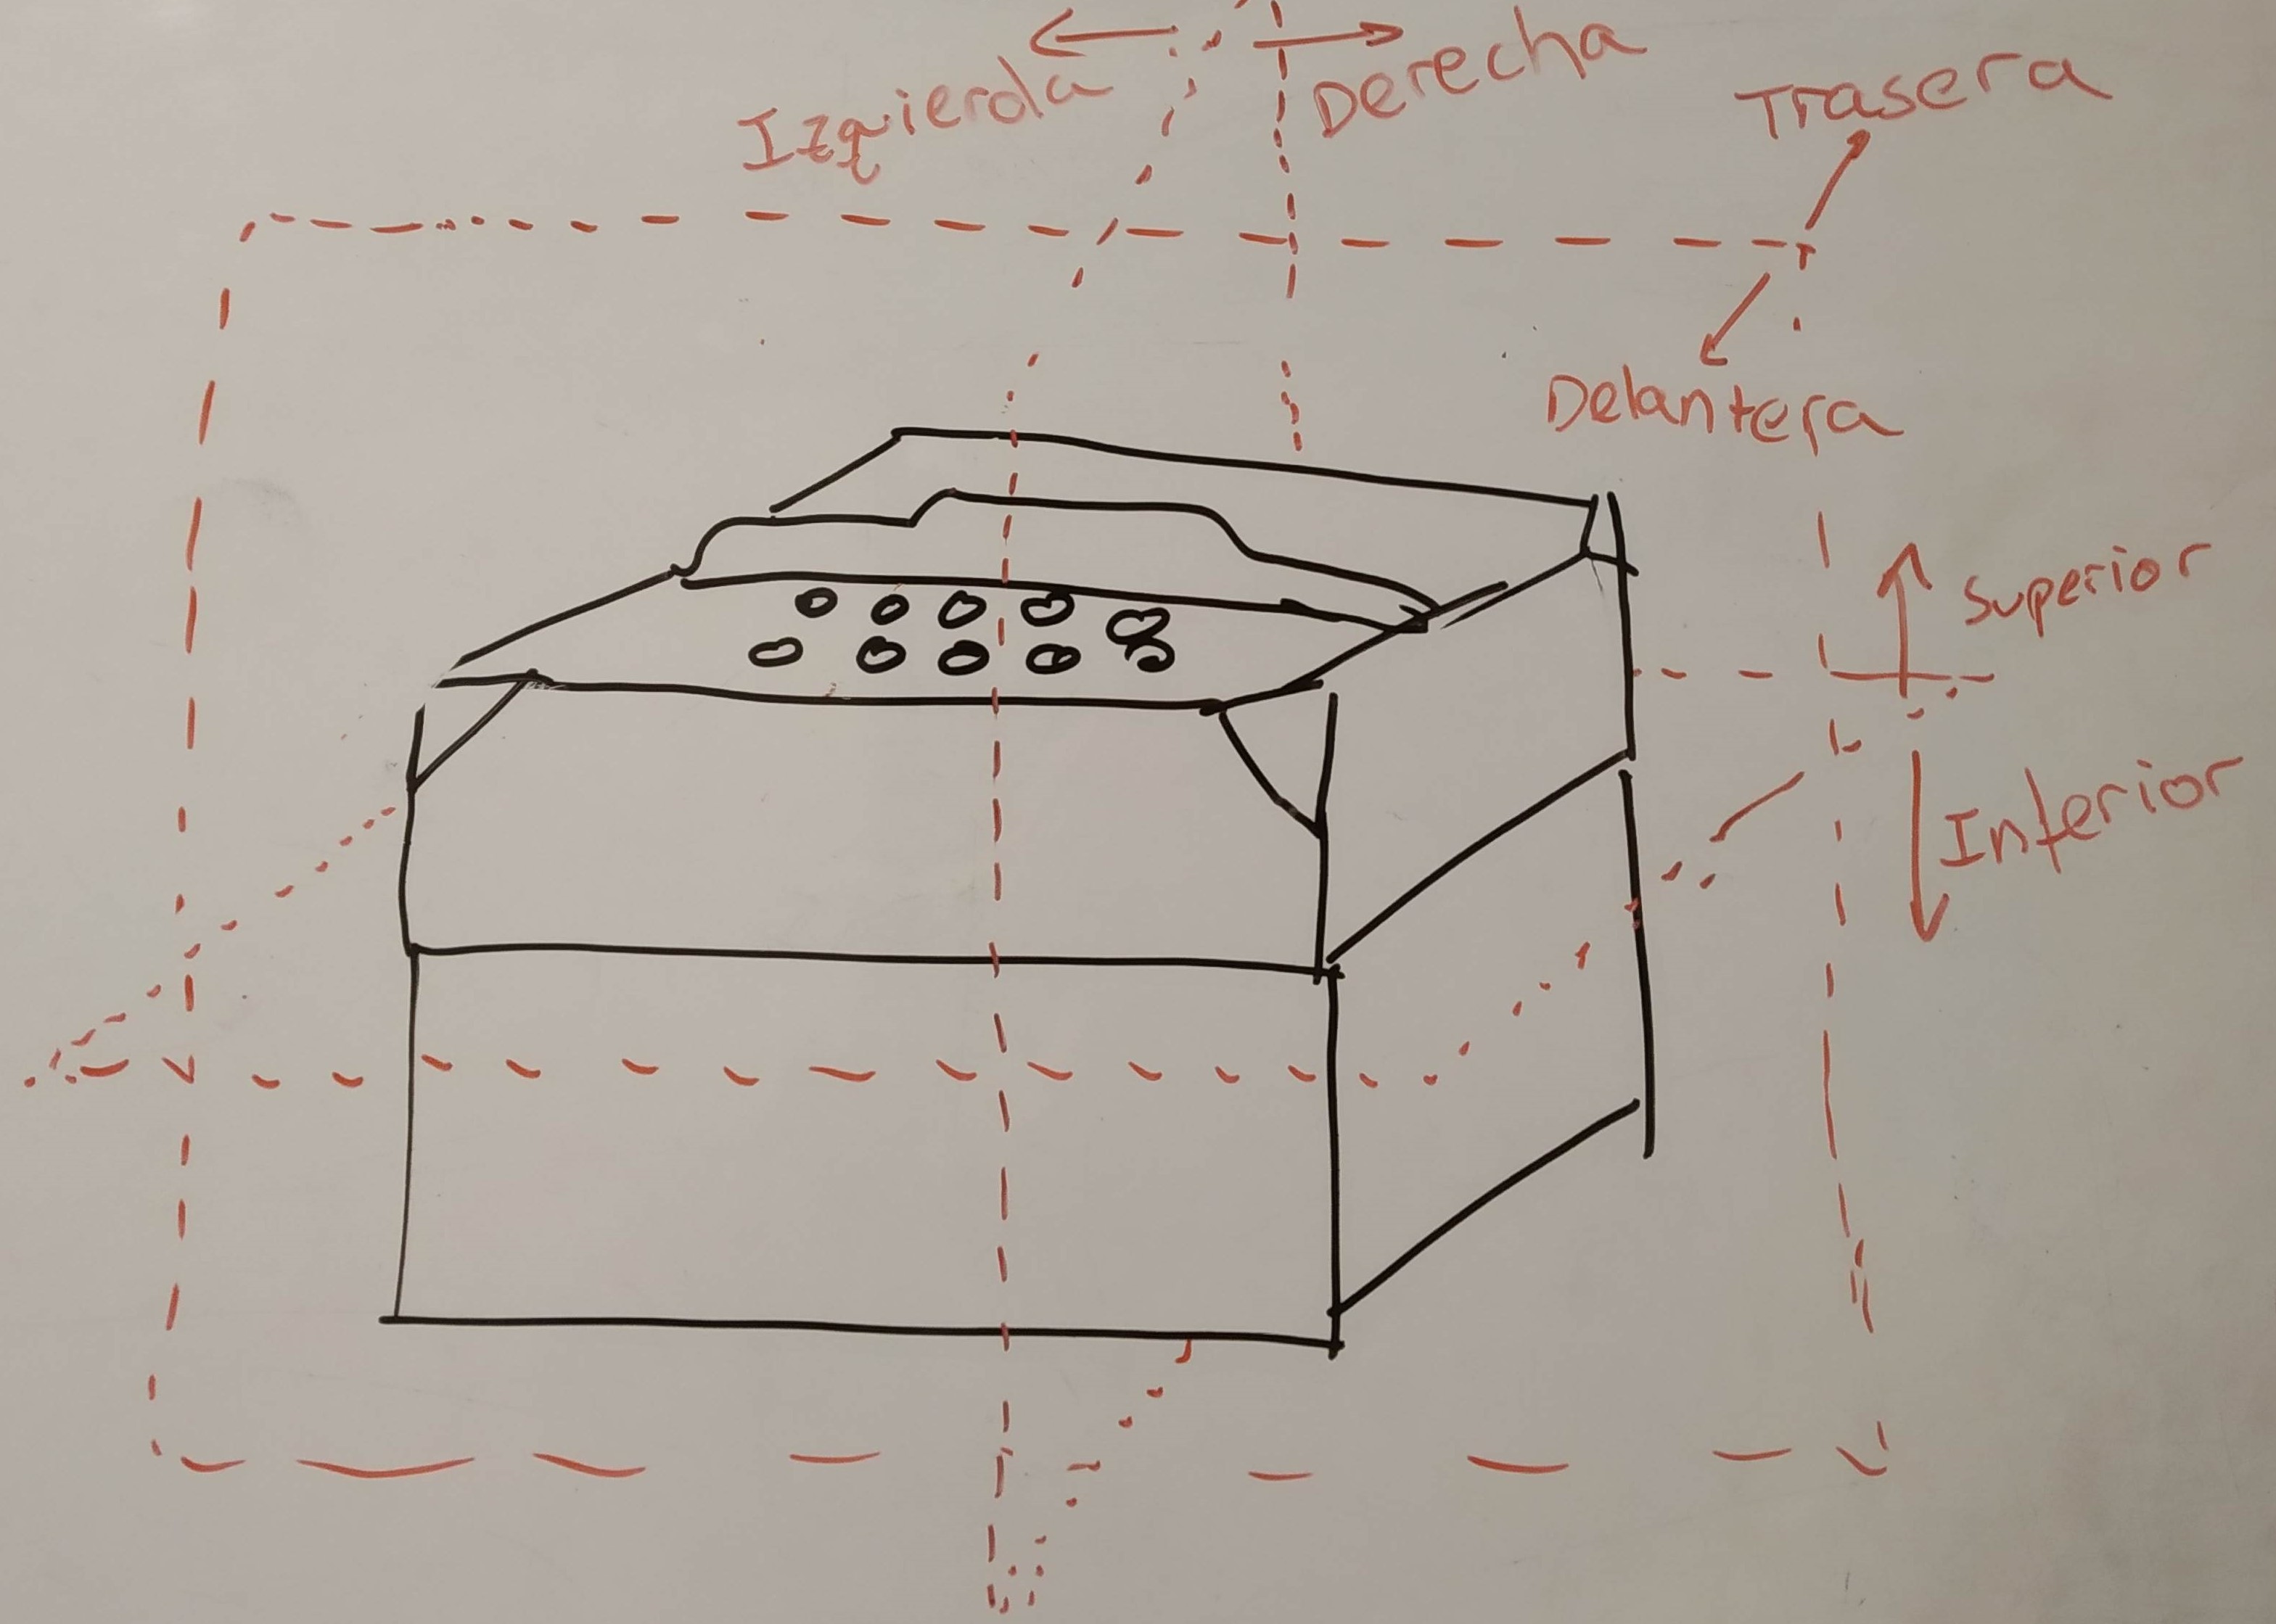 Izquierda
Derecha
Trasera
Delantera
Superior
Inferior